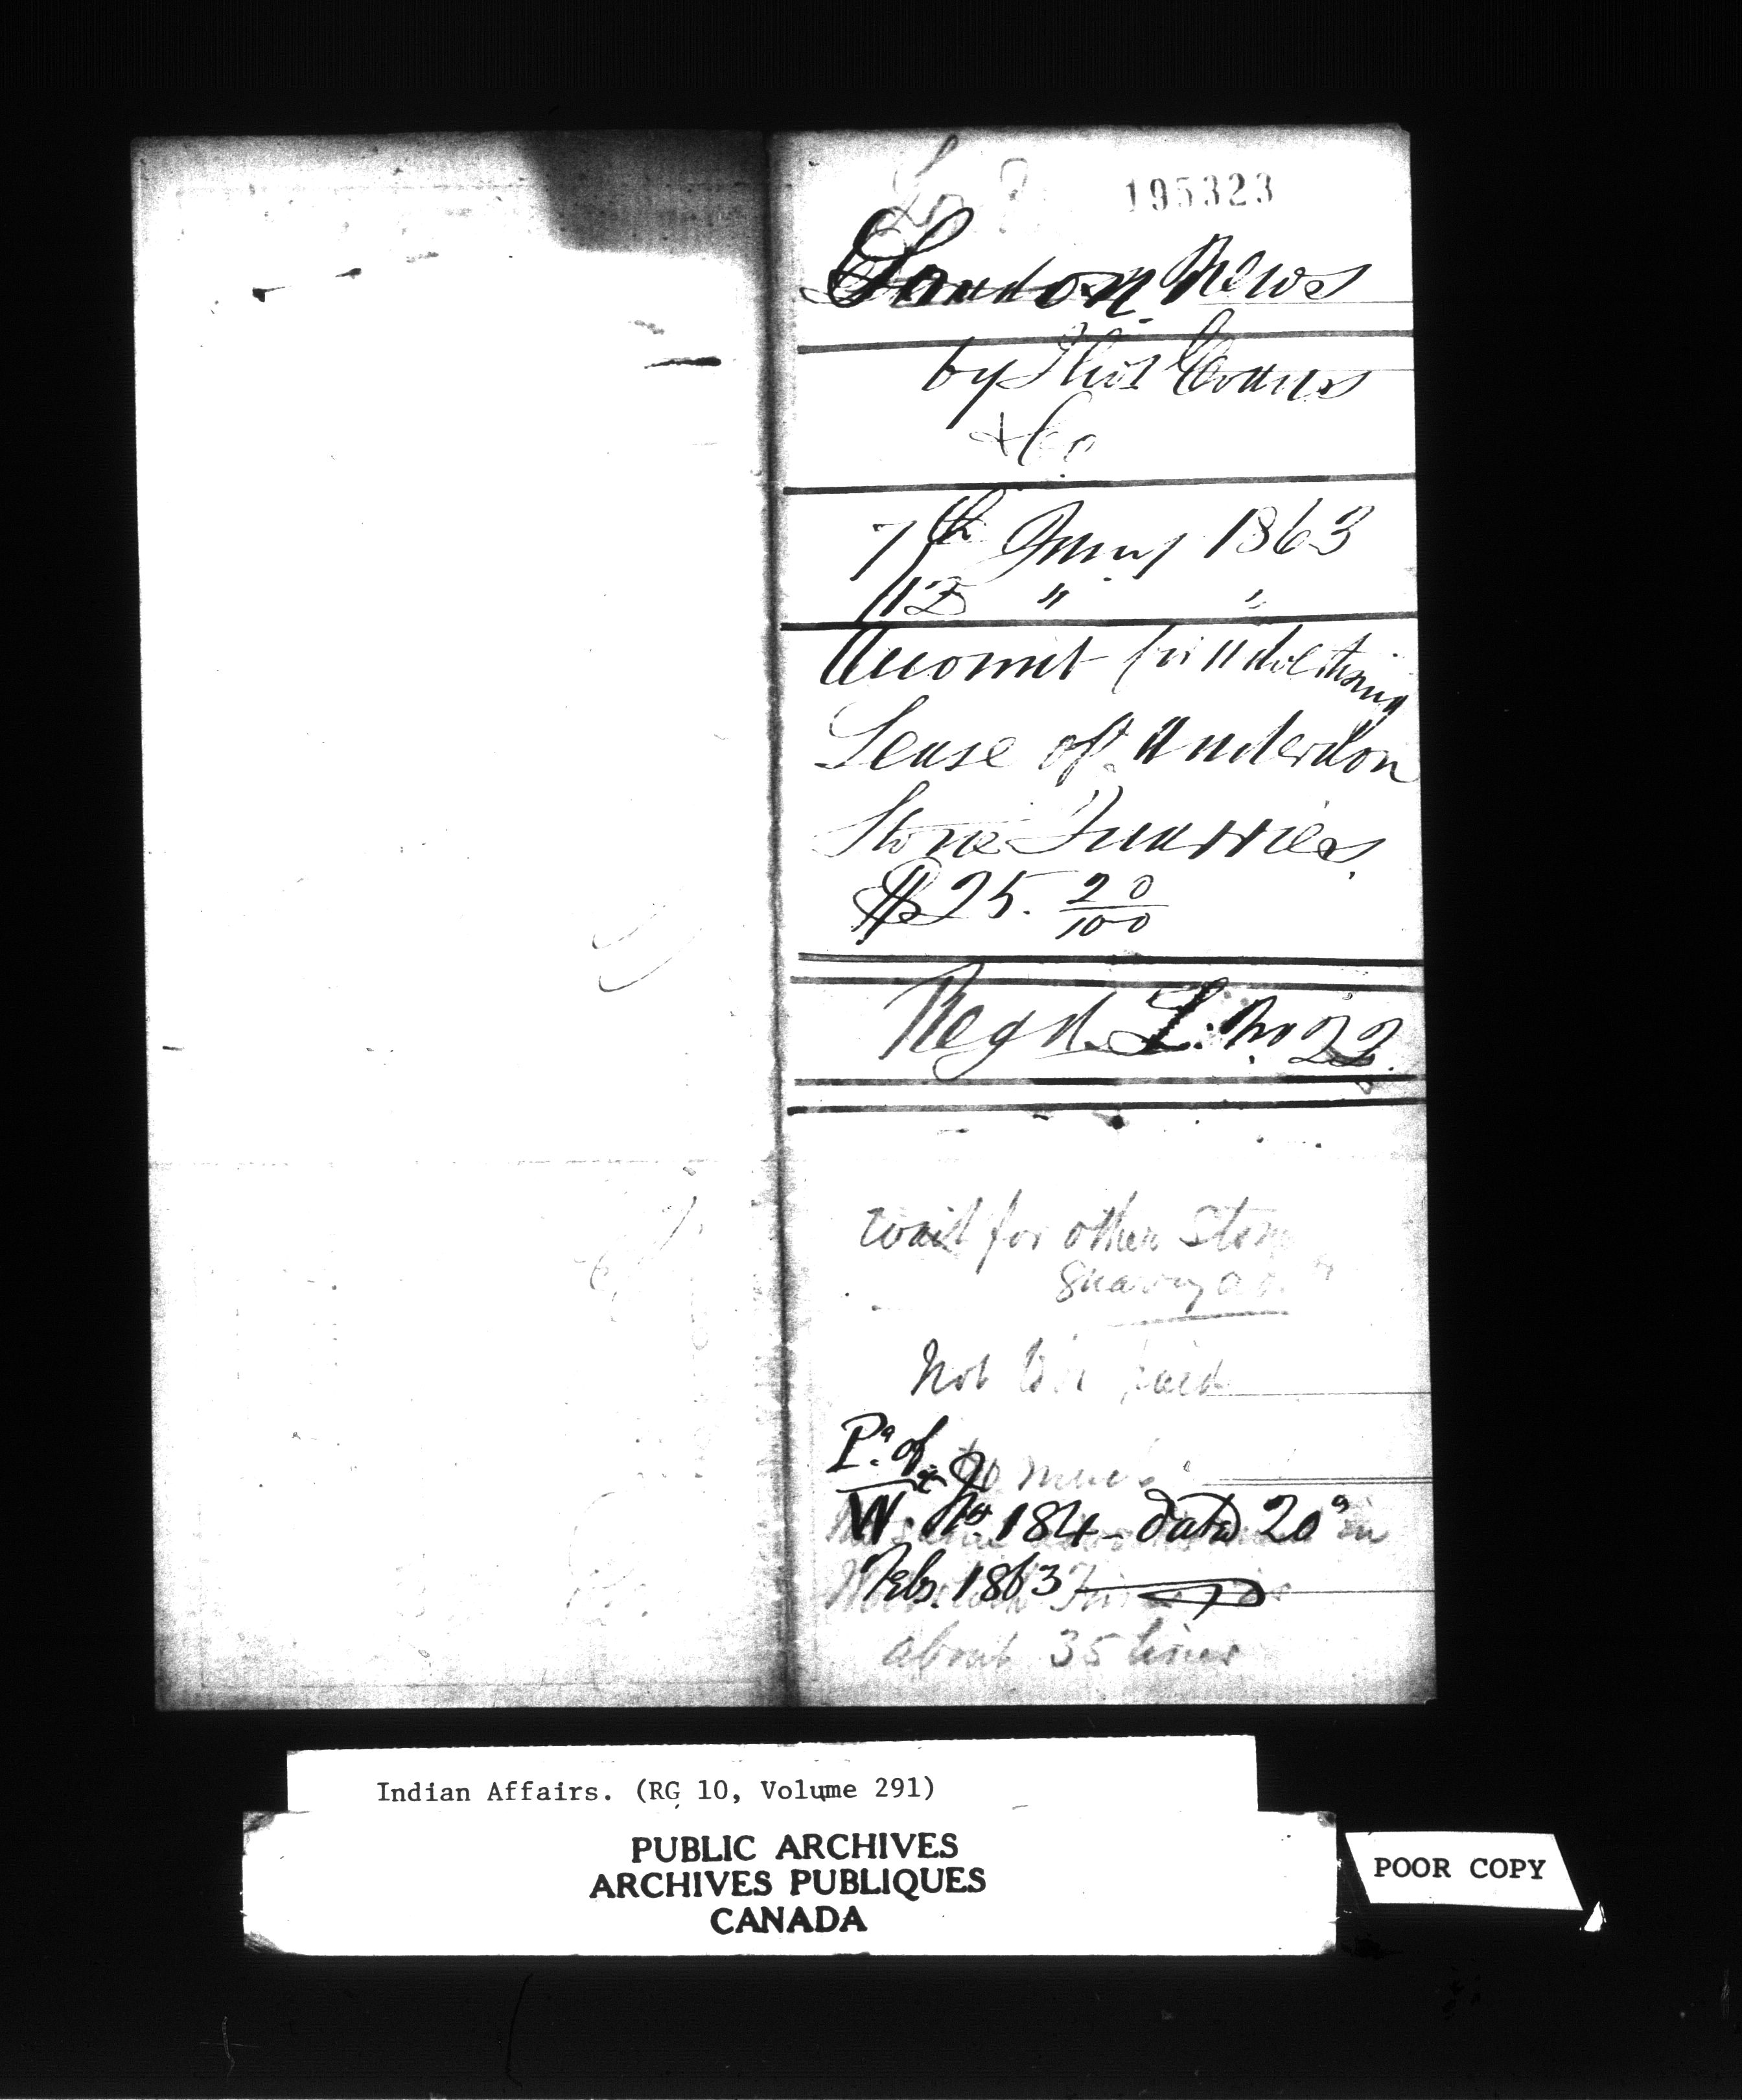 195323
London News
by Thos Evans
& Co
7th Jany 1863
12 " "
Account for Advertising
Lease of Anderdon
Stone Quarries.
$25. 20/100
Regd. L. No 22.
wait for other Stone
Quarry
Not paid
Pd. of
W. No. 184 - dated 20th
in
Feb. 1863
about 35 lines
Indian Affairs. (RG 10, Volume 291)
PUBLIC ARCHIVES
ARCHIVES PUBLIQUES
CANADA
POOR COPY